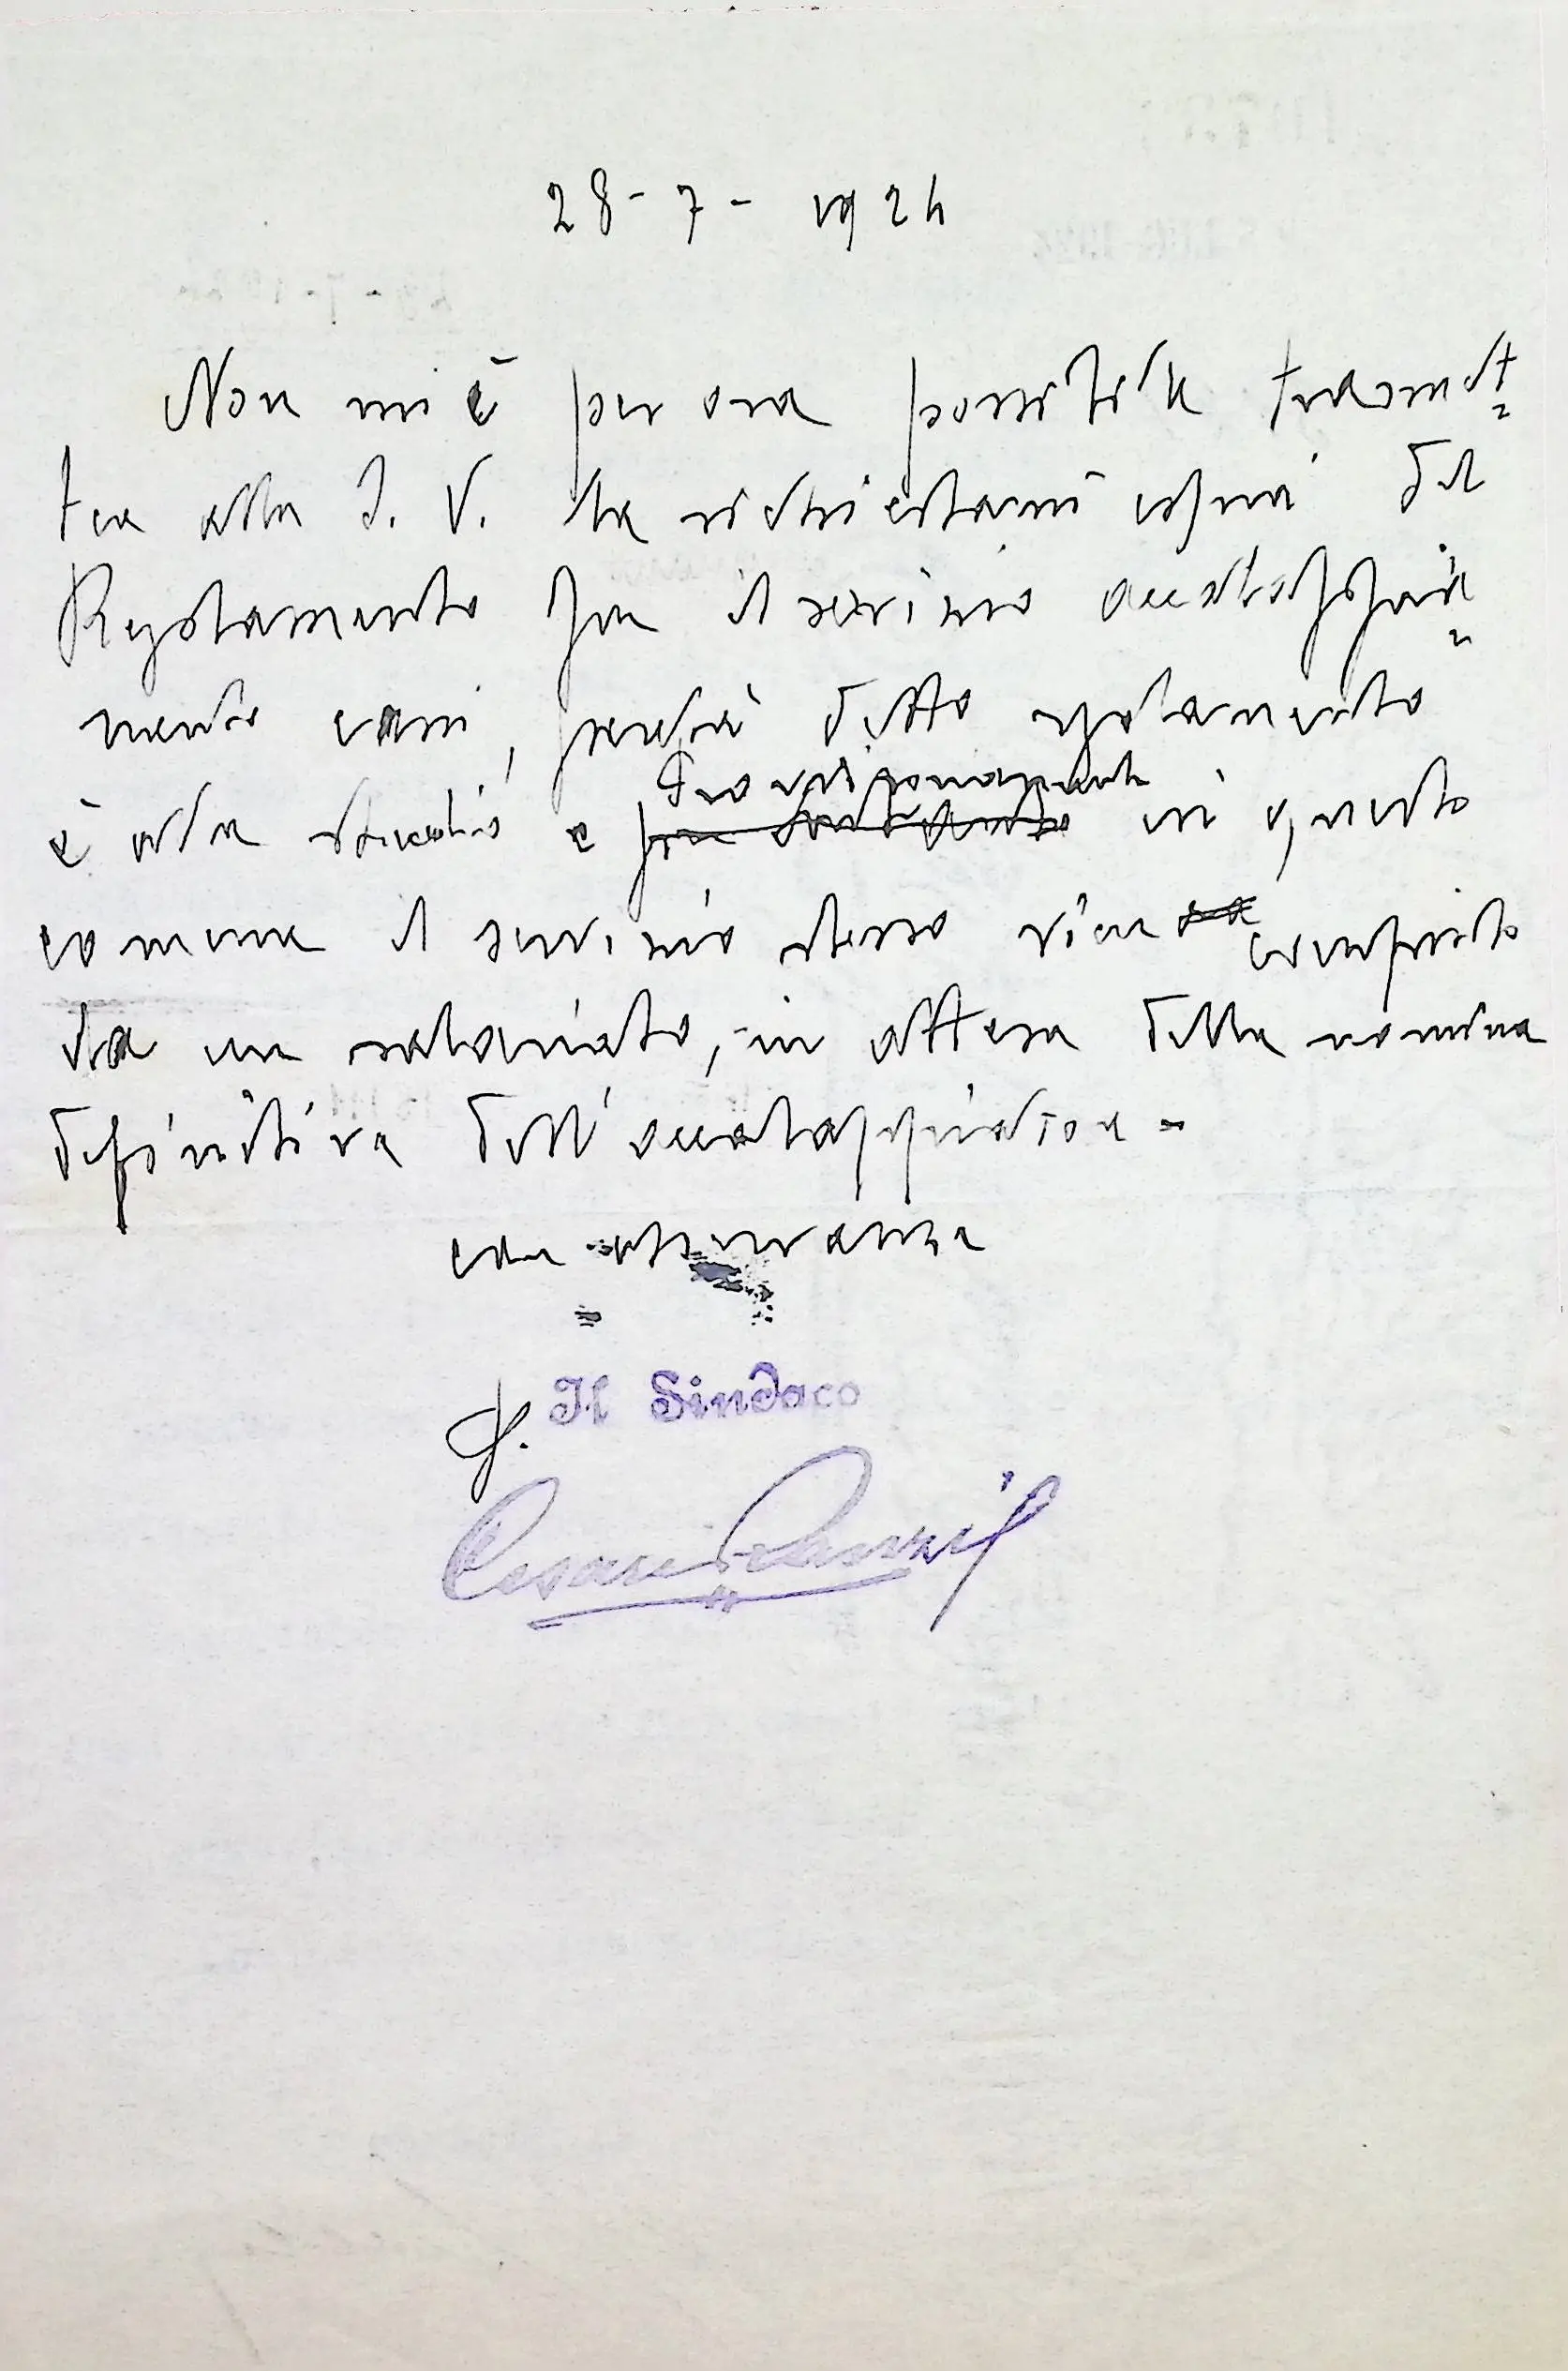 28-7-1924
Non mi è per ora possibile tramet=
tere alla S. V. la richiestami copia del
Regolamento per il servizio accalappia=
mento cani, perchè detto regolamento
è allo studio e per intanto provvisoriamente in questo
comune il servizio stesso viene compiuto
da un salariato, in attesa della nomina
definitiva dell'accalappiatore -
con osservanza
f. Il Sindaco
Cesare